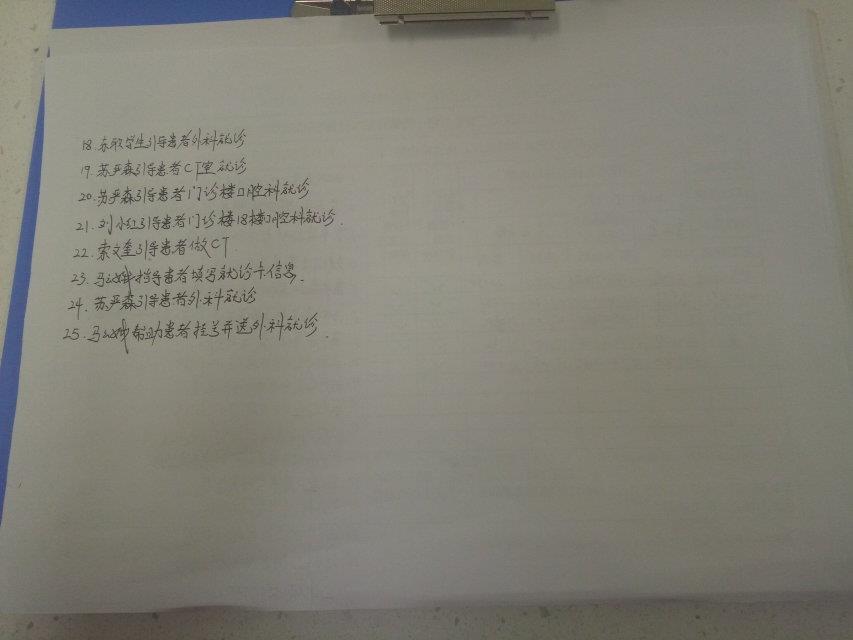 18. 东软学生引导患者外科就诊
19. 苏严森引导患者CT室就诊
20. 苏严森引导患者门诊楼口腔科就诊
21. 刘小红引导患者门诊楼18楼口腔科就诊.
22. 索文奎引导患者做CT
23. 马 指导患者填写就诊卡信息.
24. 苏严森引导患者外科就诊
25. 马 帮助患者挂号并送外科就诊.